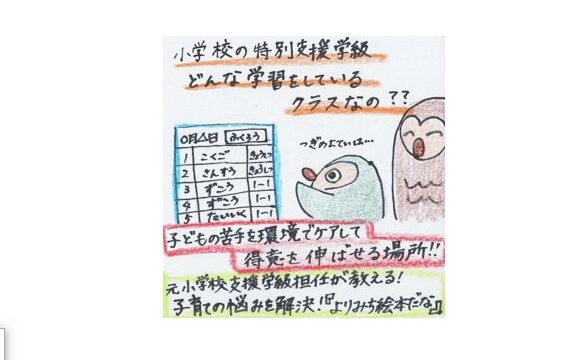 小学校の特別支援学級
どんな学習をしている
クラスなの??
〇月△日 ふくろう
1 こくご きょうしつ
2 さんすう きょうしつ
3 ずこう 1-1
4 ずこう 1-1
5 たいいく 1-1
つぎのよていは…
子どもの苦手を環境でケアして
得意を伸ばせる場所!!
元小学校支援学級担任が教える!
子育ての悩みを解決!『よりみち絵本だな』